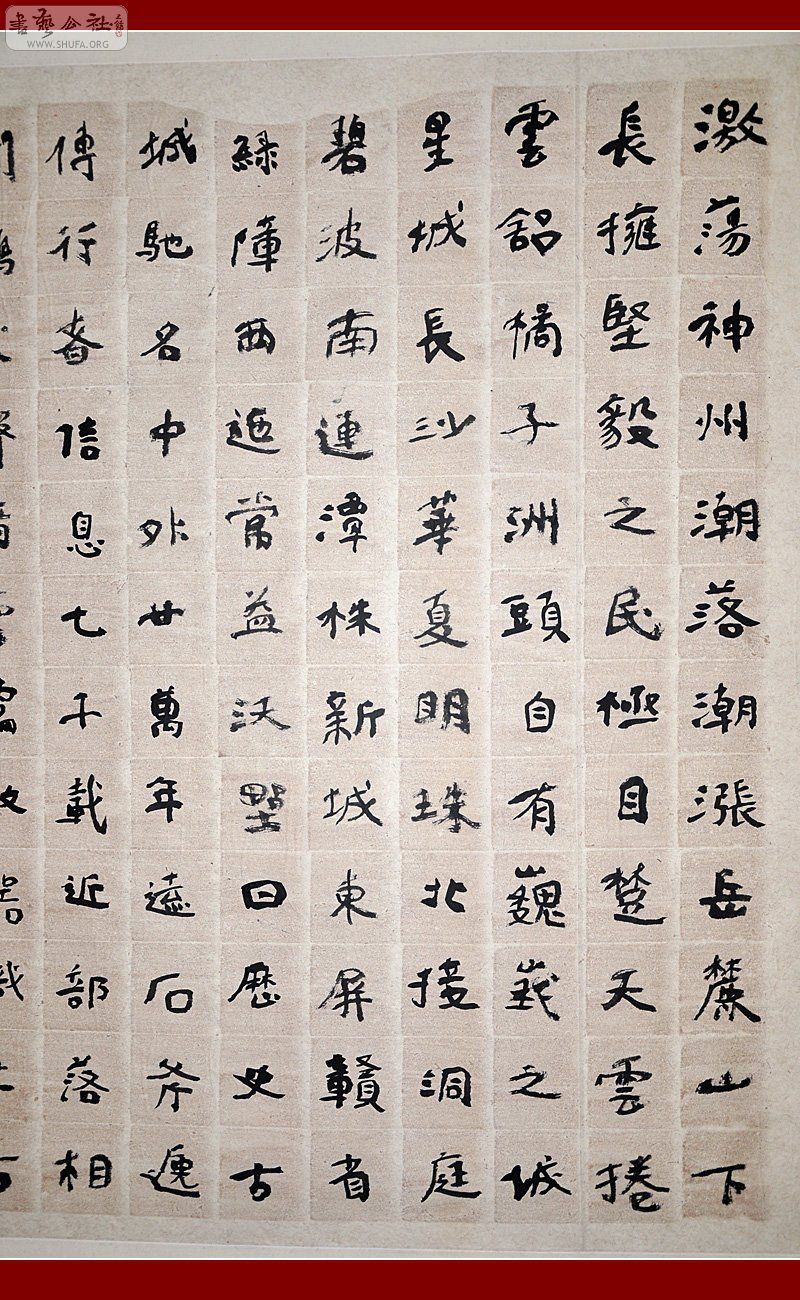 激蕩神州潮落潮漲岳麓山下
長擁堅毅之民極目楚天雲捲
雲舒橘子洲頭自有巍峩之城
星城長沙華夏明珠北接洞庭
碧波南連潭株新城東屏贛省
緑障西迤常益沃野曰歷史古
城馳名中外廿萬年遠石斧遞
傳行者信息七千載近部落相
書藝公社
WWW.SHUFA.ORG